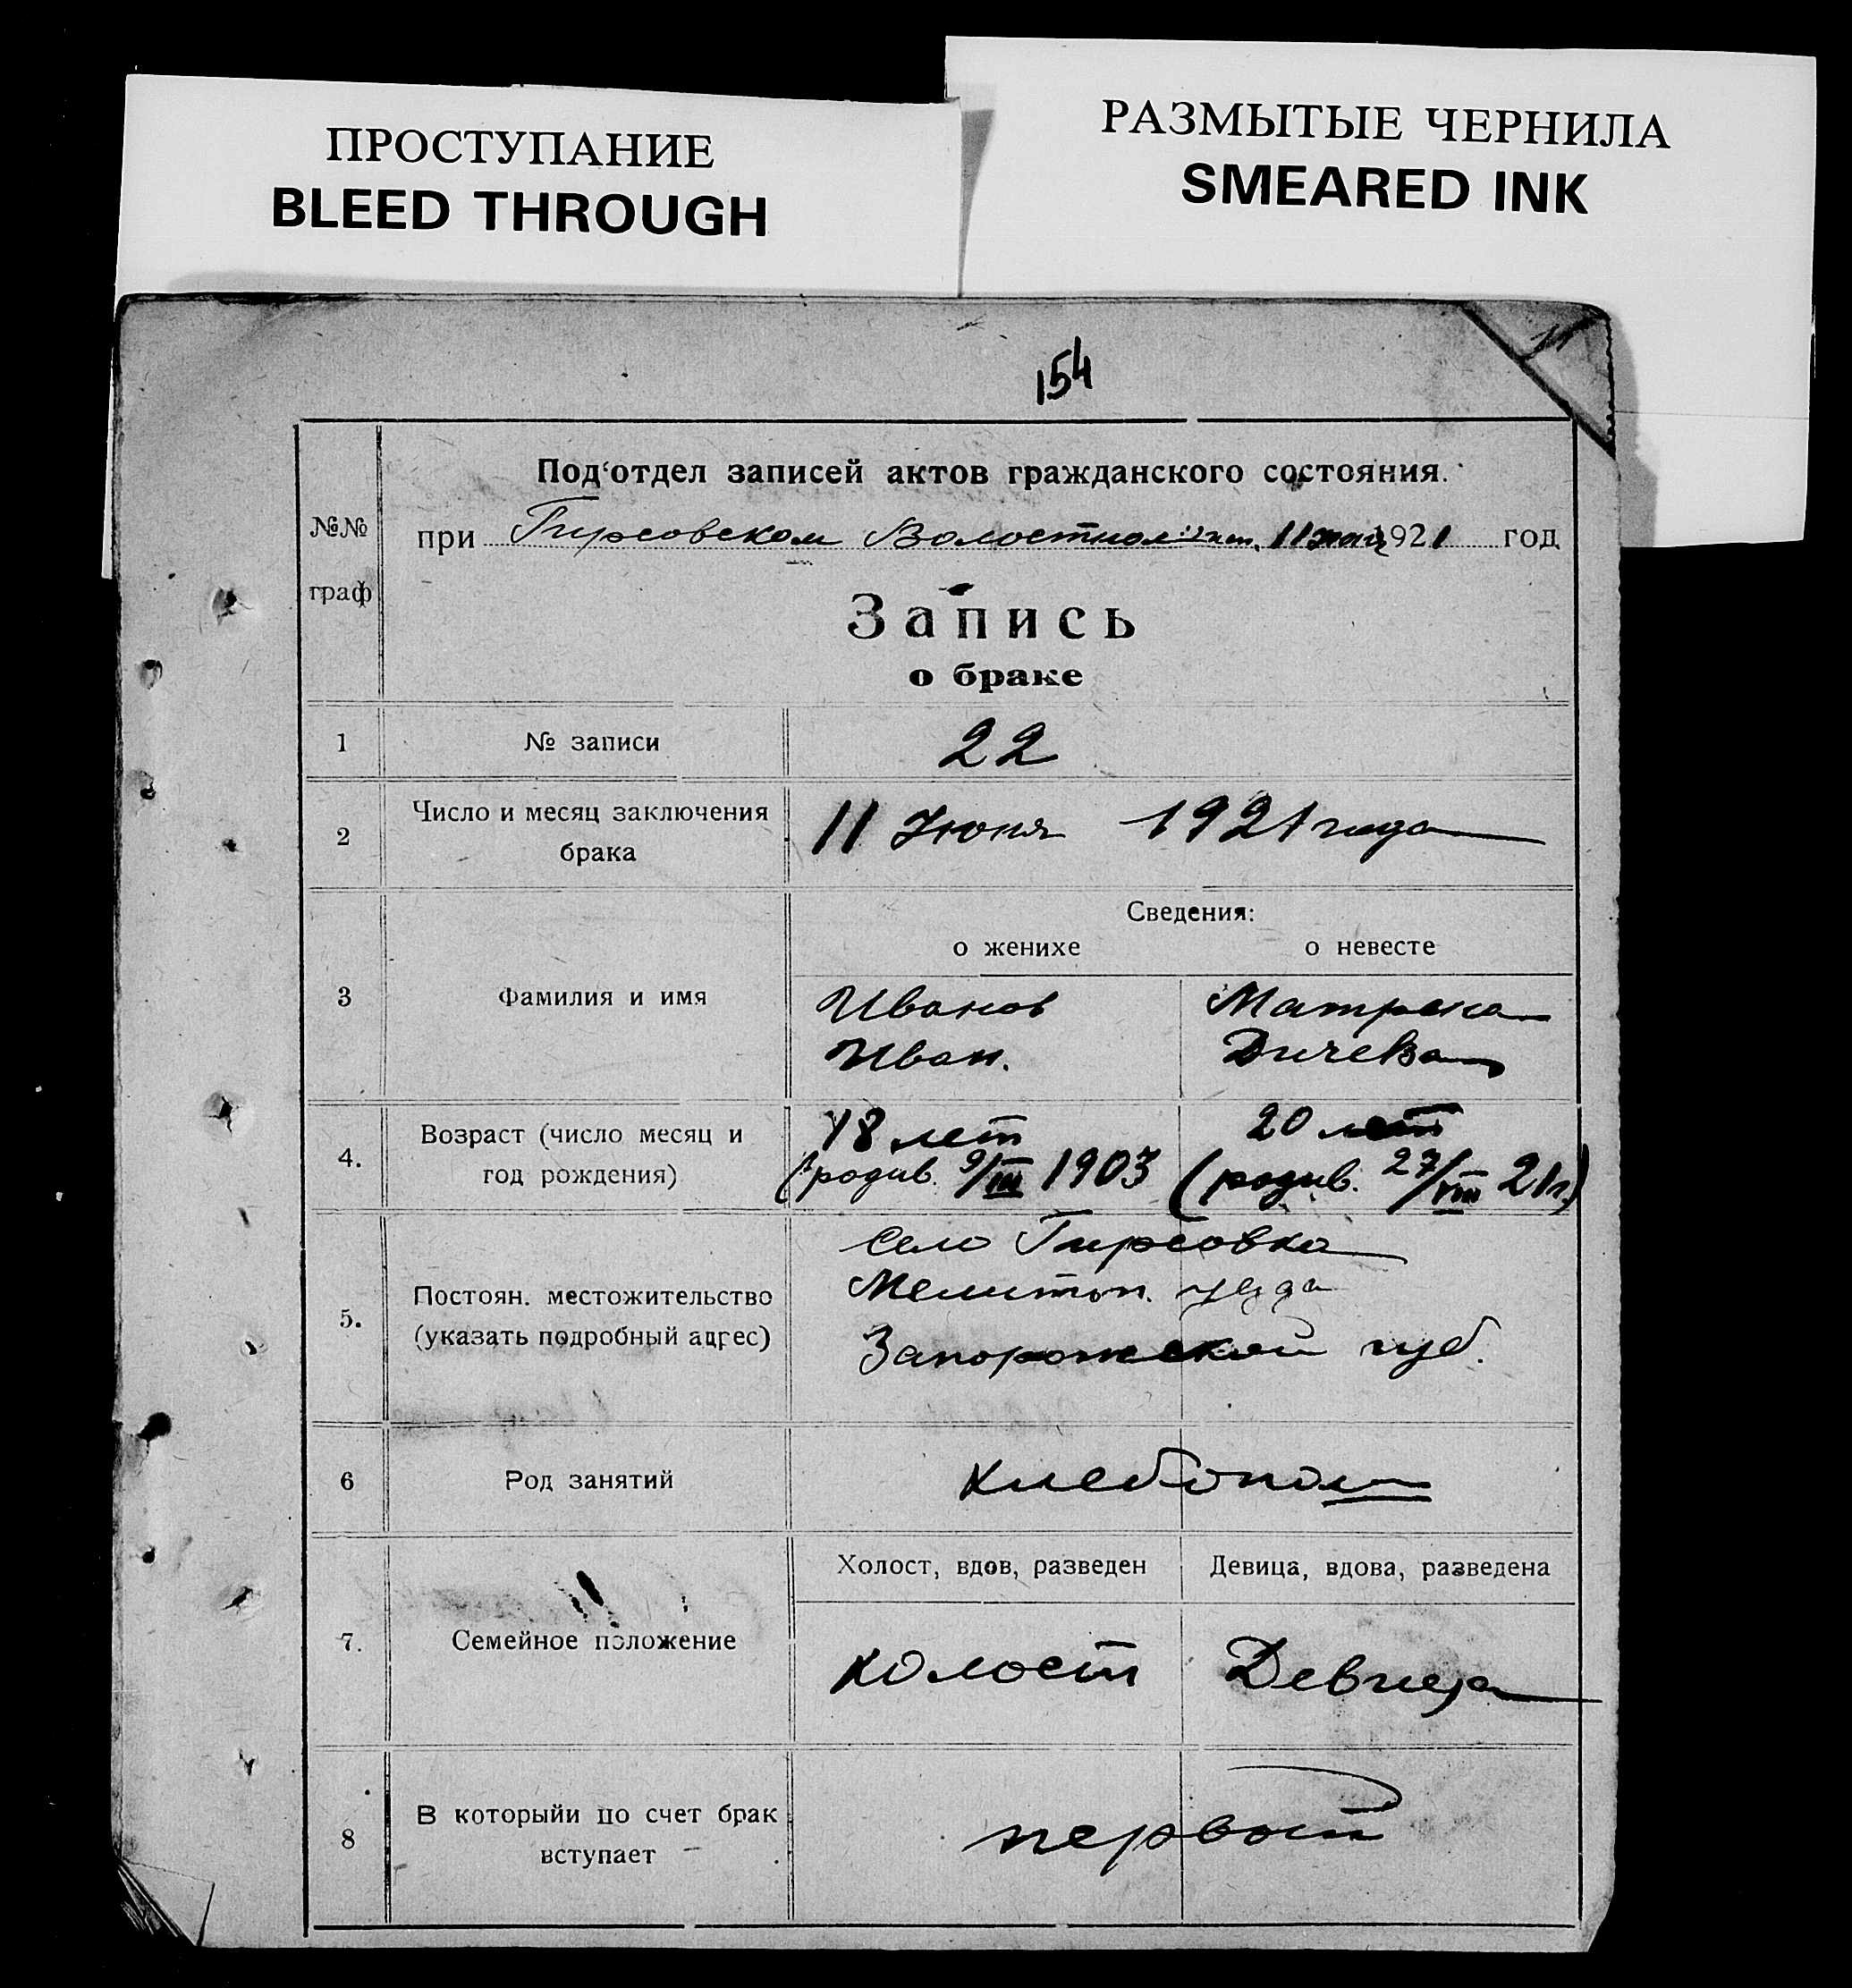 ПРОСТУПАНИЕ
BLEED THROUGH
РАЗМЫТЫЕ ЧЕРНИЛА
SMEARED INK
154
№№
граф
Под‘отдел записей актов гражданского состояния.
при Гирсовском Волостном 11 1921 год
Запись
о браке
1 № записи 22
2 Число и месяц заключения
брака
11 Июня 1921 года
Сведения:
о женихе о невесте
3 Фамилия и имя
Иванов Матрена
Иван. Дичева
4. Возраст (число месяц и
год рождения)
18 лет 20 лет
(родив. 9/III 1903 (родив. 27/VIII 21г.)
5. Постоян. местожительство
(указать подробный адрес)
Село Гирсовка
Мелитоп. уезда
Запорожской губ.
6 Род занятий хлебопаш
Холост, вдов, разведен Девица, вдова, разведена
7. Семейное положение
холост Девица
8 В которыйи по счет брак
вступает
первый